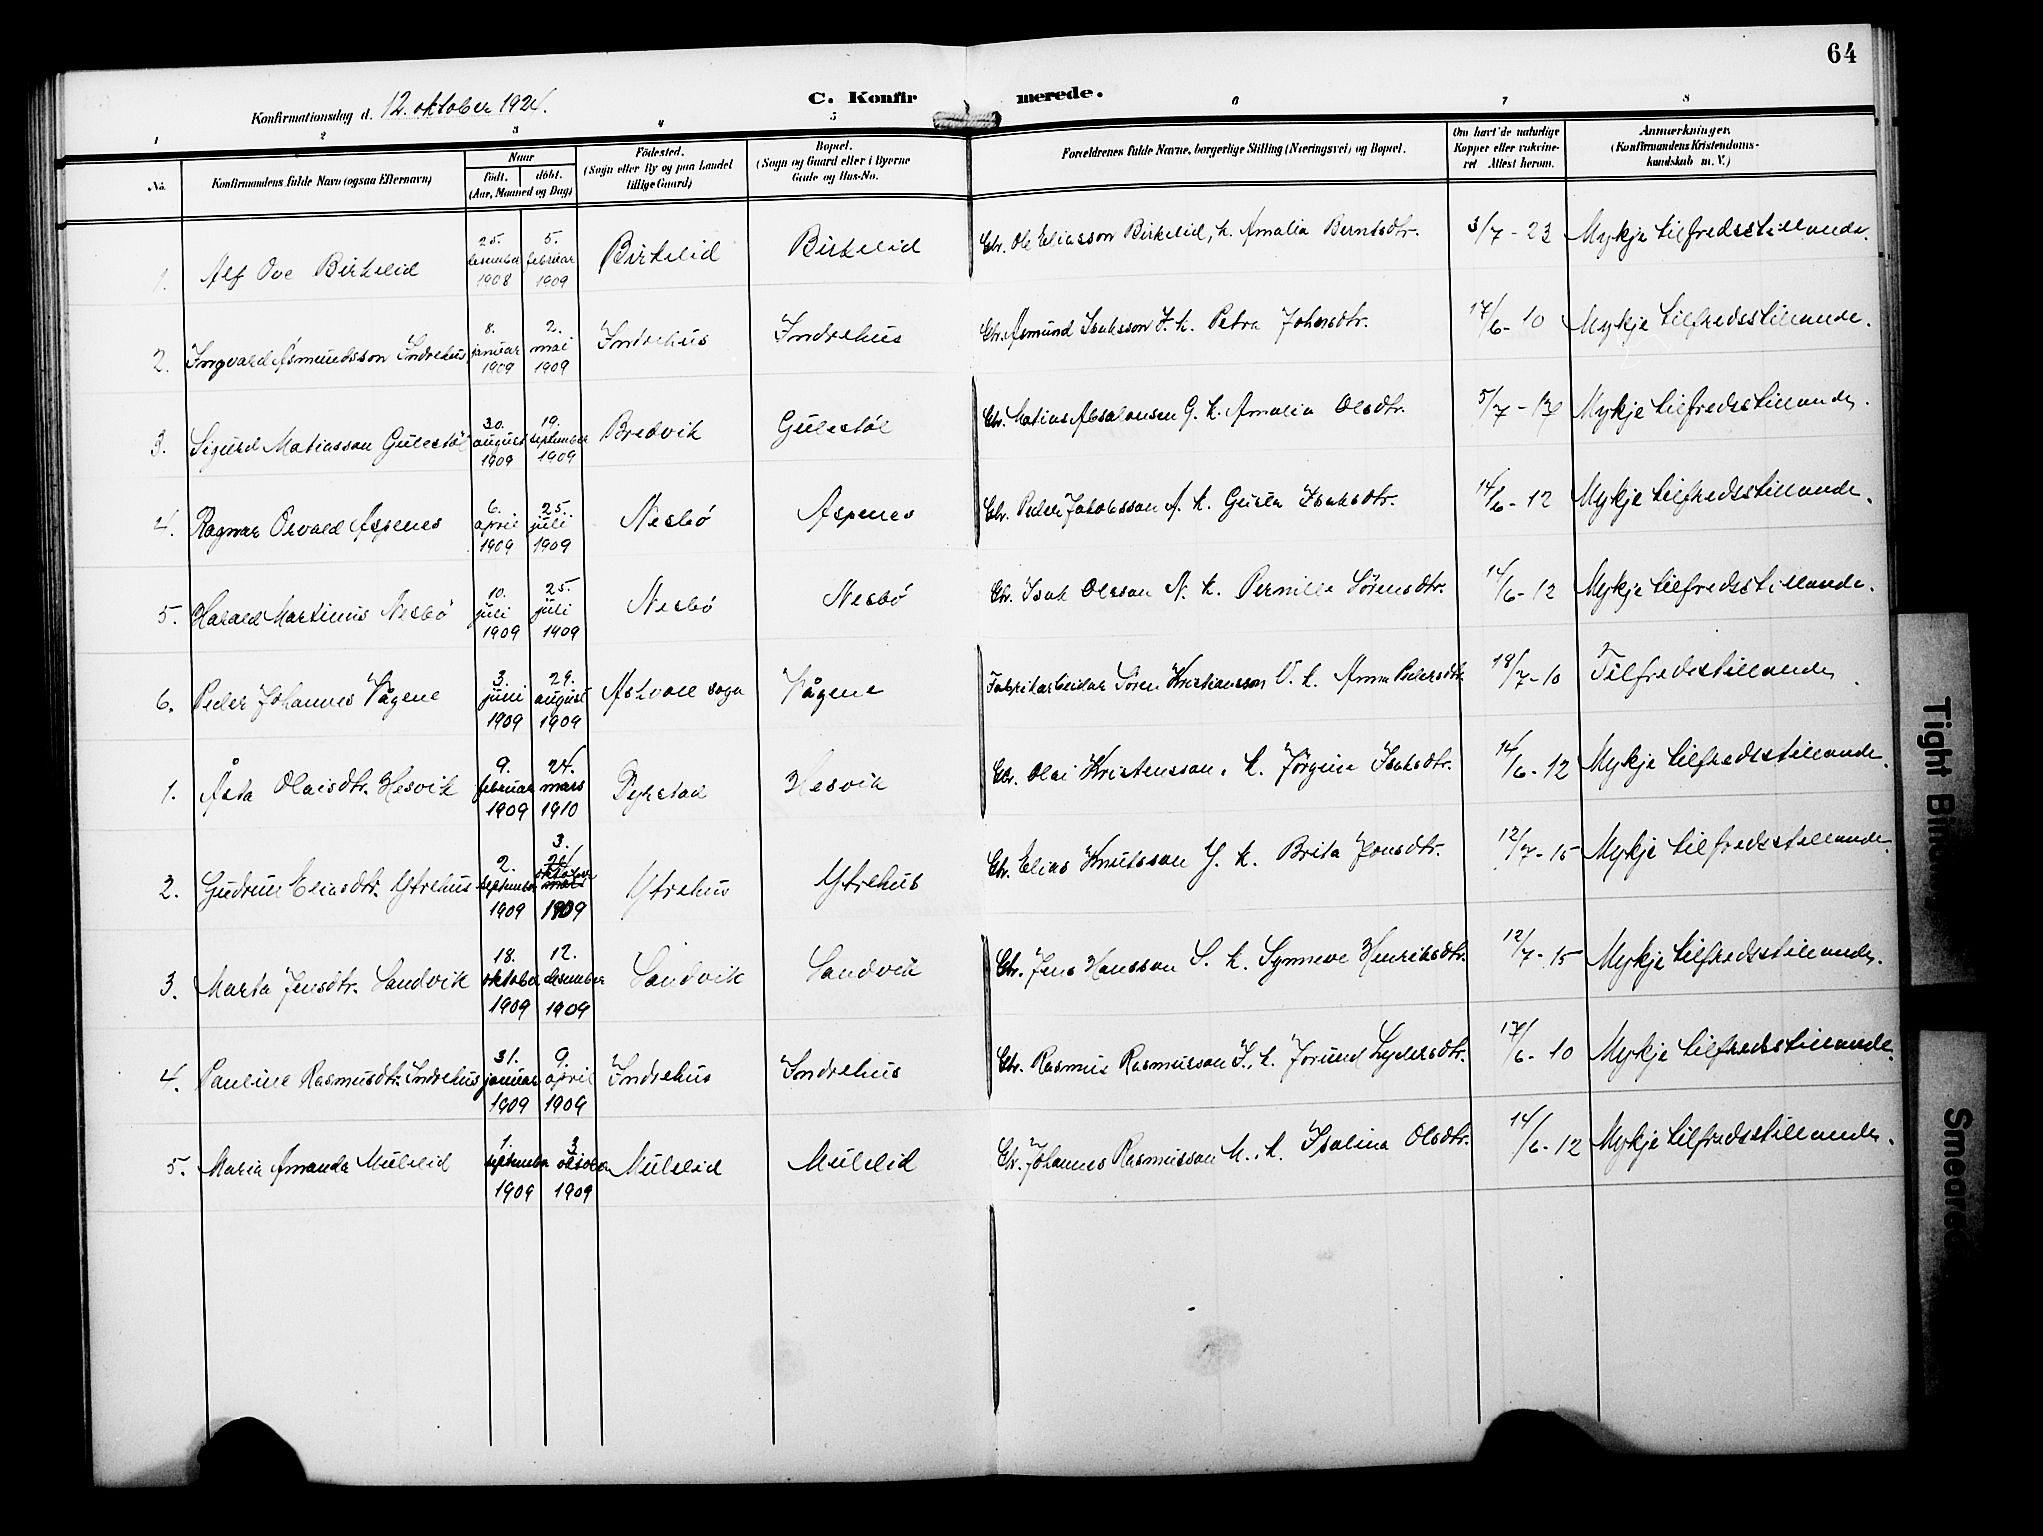 64
C. Konfir merede.
Konfirmationsdag d. 12. oktober 1924.
1 2 3 4 5 6 7 8
No.
Konfirmandens fulde Navn (ogsaa Efternavn)
Naar
født. døbt.
(Aar, Maaned og Dag)
Fødested.
(Sogn eller By og paa Landet
tillige Gaard)
Bopæl.
(Sogn og Gaard eller i Byerne
Gade og Hus-No.
Forældrenes fulde Navne, borgerlige Stilling (Næringsvei) og Bopæl.
Om havt de naturlige
Kopper eller vakcine-
ret Attest herom.
Anmærkninger.
(Konfirmandens Kristendoms-
kundskab m. V.)
1. Alf Ove Birkelid 25. desember 1908 5. februar 1909 Birkelid Birkelid Gbr. Ole Eliasson Birkelid, k. Amalia Berntsdtr. 3/7 - 23 Mykje tilfredsstillande.
2. Ingvard Åsmundsson Indrehus 8. januar 1909 2. mai 1909 Indrehus Indrehus Gbr. Åsmund Isaksson I. k. Petra Johnsdtr. 17/6 - 10 Mykje tilfredsstillande.
3. Sigurd Matiasson Gulestøl 30. august 1909 19. september 1909 Bredvik Gulestøl Gbr. Matias Absalonsen G. k. Amalia Olsdtr. 5/7 - Mykje tilfredsstillande.
4. Ragnar Osvald Aspenes 6. april 1909 25. juli 1909 Nesbø Aspenes Gbr. Peder Jakobsson A. k. Isaksdtr. 14/6 - 12 Mykje tilfredsstillande.
5. Harald Martinus Nesbø 10. juli 1909 25. juli 1909 Nesbø Nesbø Gbr. Isak Olsson N. k. Pernille Sørensdtr. 14/6 - 12 Mykje tilfredsstillande.
6. Peder Johannes Vågene 3. juni 1909 29. august 1909 Askvoll sogn Vågene Fabrikarbeidar Søren Kristiansson V. k. Anna Pedersdtr. 18/7 - 10 Tilfredsstillande.
1. Åsta Olaisdtr. Hesvik 9. februar 1909 24. mars 1910 Dyrstad Hesvik Gbr. Olai Kristensson. k. Jørgine Isaksdtr. 14/6 - 12 Mykje tilfredsstillande.
2. Gudrun Eliasdtr. Ytrehus 2. september 1909 3. oktober 1909 Ytrehus Ytrehus Gbr. Elias Knutsson Y. k. Brita Jonsdtr. 12/7 - 15 Mykje tilfredsstillande.
3. Marta Jensdtr. Sandvik 18. oktober 1909 12. desember 1909 Sandvik Sandvik Gbr. Jens Hansson S. k. Synneve Henriksdtr. 12/7 - 15 Mykje tilfredsstillande.
4. Pauline Rasmusdtr. Indrehus 31. januar 1909 9. april 1909 Indrehus Indrehus Gbr. Rasmus Rasmusson I. k. Jorund Lydersdtr. 17/6 - 10 Mykje tilfredsstillande.
5. Maria Amanda Mulelid 1. september 1909 3. oktober 1909 Mulelid Mulelid Gbr. Johannes Rasmusson M. k. Isalina Olsdtr. 14/6 - 12 Mykje tilfredsstillande.
Tight
Smeared